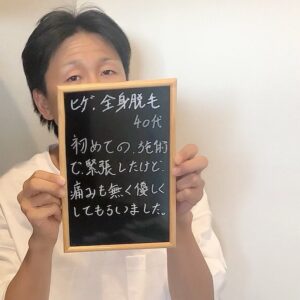 ヒゲ、全身脱毛
40代
初めての施術
で緊張したけど
痛みも無く優しく
してもらいました。